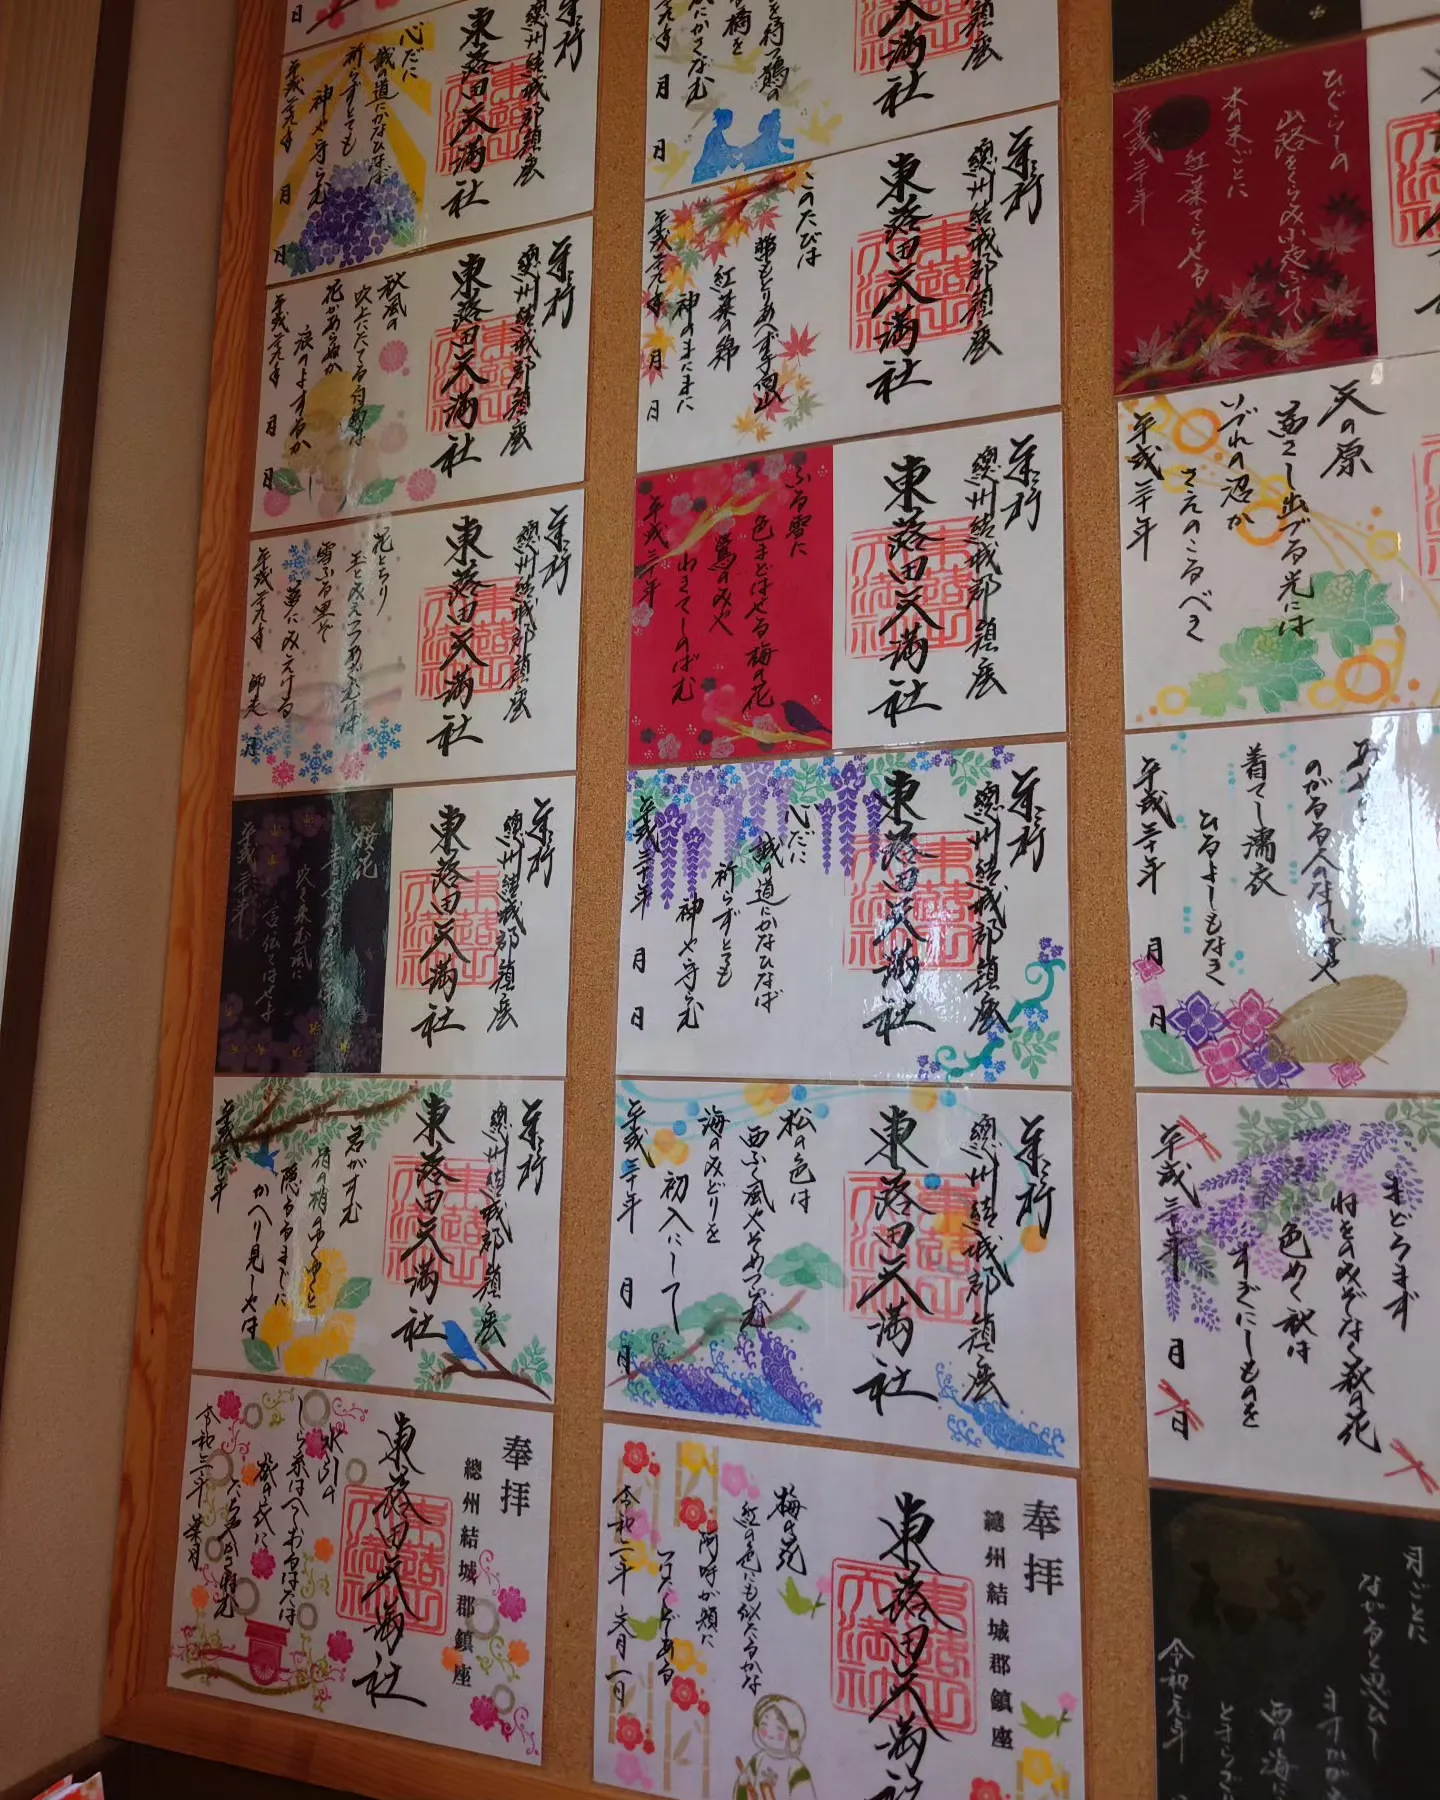 奉拝
總州結城郡鎮座
東蕗田天満社
心だに
誠の道にかなひなば
祈らずとても
神や守らむ
平成二十九年
月
日
奉拝
總州結城郡鎮座
東蕗田天満社
秋風の
吹上にたてる白菊は
花かあらぬか
浪のよするか
平成二十九年
月
日
奉拝
總州結城郡鎮座
東蕗田天満社
花とちり
玉とみえつつあざむけば
雪ふる里ぞ
夢にみえける
平成二十九年
師走
日
奉拝
總州結城郡鎮座
東蕗田天満社
桜花
吹き来む風に
言伝てはせよ
平成三十年
奉拝
總州結城郡鎮座
東蕗田天満社
君がすむ
宿の梢のゆくゆくと
隠るるまでに
かへり見しやは
平成三十年
奉拝
總州結城郡鎮座
東蕗田天満社
水引の
しら糸はへておるはたは
旅の衣に
たちやかさねむ
令和二年
葉月
東蕗田天満社
月
日
奉拝
總州結城郡鎮座
東蕗田天満社
このたびは
幣もとりあへず手向山
紅葉の錦
神のまにまに
平成二十九年
月
日
奉拝
總州結城郡鎮座
東蕗田天満社
ふる雪に
色まどはせる梅の花
鶯のみや
わきてしのばむ
平成三十年
奉拝
總州結城郡鎮座
東蕗田天満社
心だに
誠の道にかなひなば
祈らずとても
神や守らむ
平成三十年
月
日
奉拝
總州結城郡鎮座
東蕗田天満社
松の色は
西ふく風やそめつらむ
海のみどりを
初入にして
平成三十年
月
日
奉拝
總州結城郡鎮座
東蕗田天満社
梅の花
紅の色にも似たるかな
阿呼が頬に
つけたくぞある
令和二年
文月一日
ひぐらしの
山路をくらみ小夜ふけて
木の末ごとに
紅葉てらせる
平成三十年
天の原
茜さし出づる光には
いづれの沼か
さえのこるべき
平成三十年
のがるる人のなければや
着てし濡衣
ひるよしもなき
平成三十年
月
日
まどろまず
ねをのみぞなく萩の花
色めく秋は
すぎにしものを
平成三十年
月
日
月ごとに
ながると思ひし
ますかがみ
西の海に
令和元年